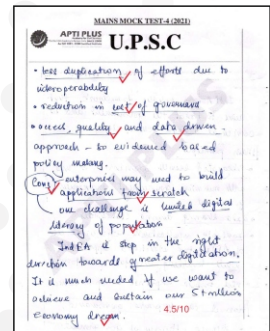 MAINS MOCK TEST-4 (2021)
APTI PLUS
U.P.S.C
• less duplication of efforts due to
interoperability
• reduction in cost of governance
• access, quality and data driven
approach – to evidenced based
policy making.
Cons enterprises may need to build
applications from scratch
one challenge is limited digital
literacy of population
IndEA is step in the right
direction towards greater digitization.
It is much needed if we want to
achieve and sustain our 5 trillion
economy dream.
4.5/10